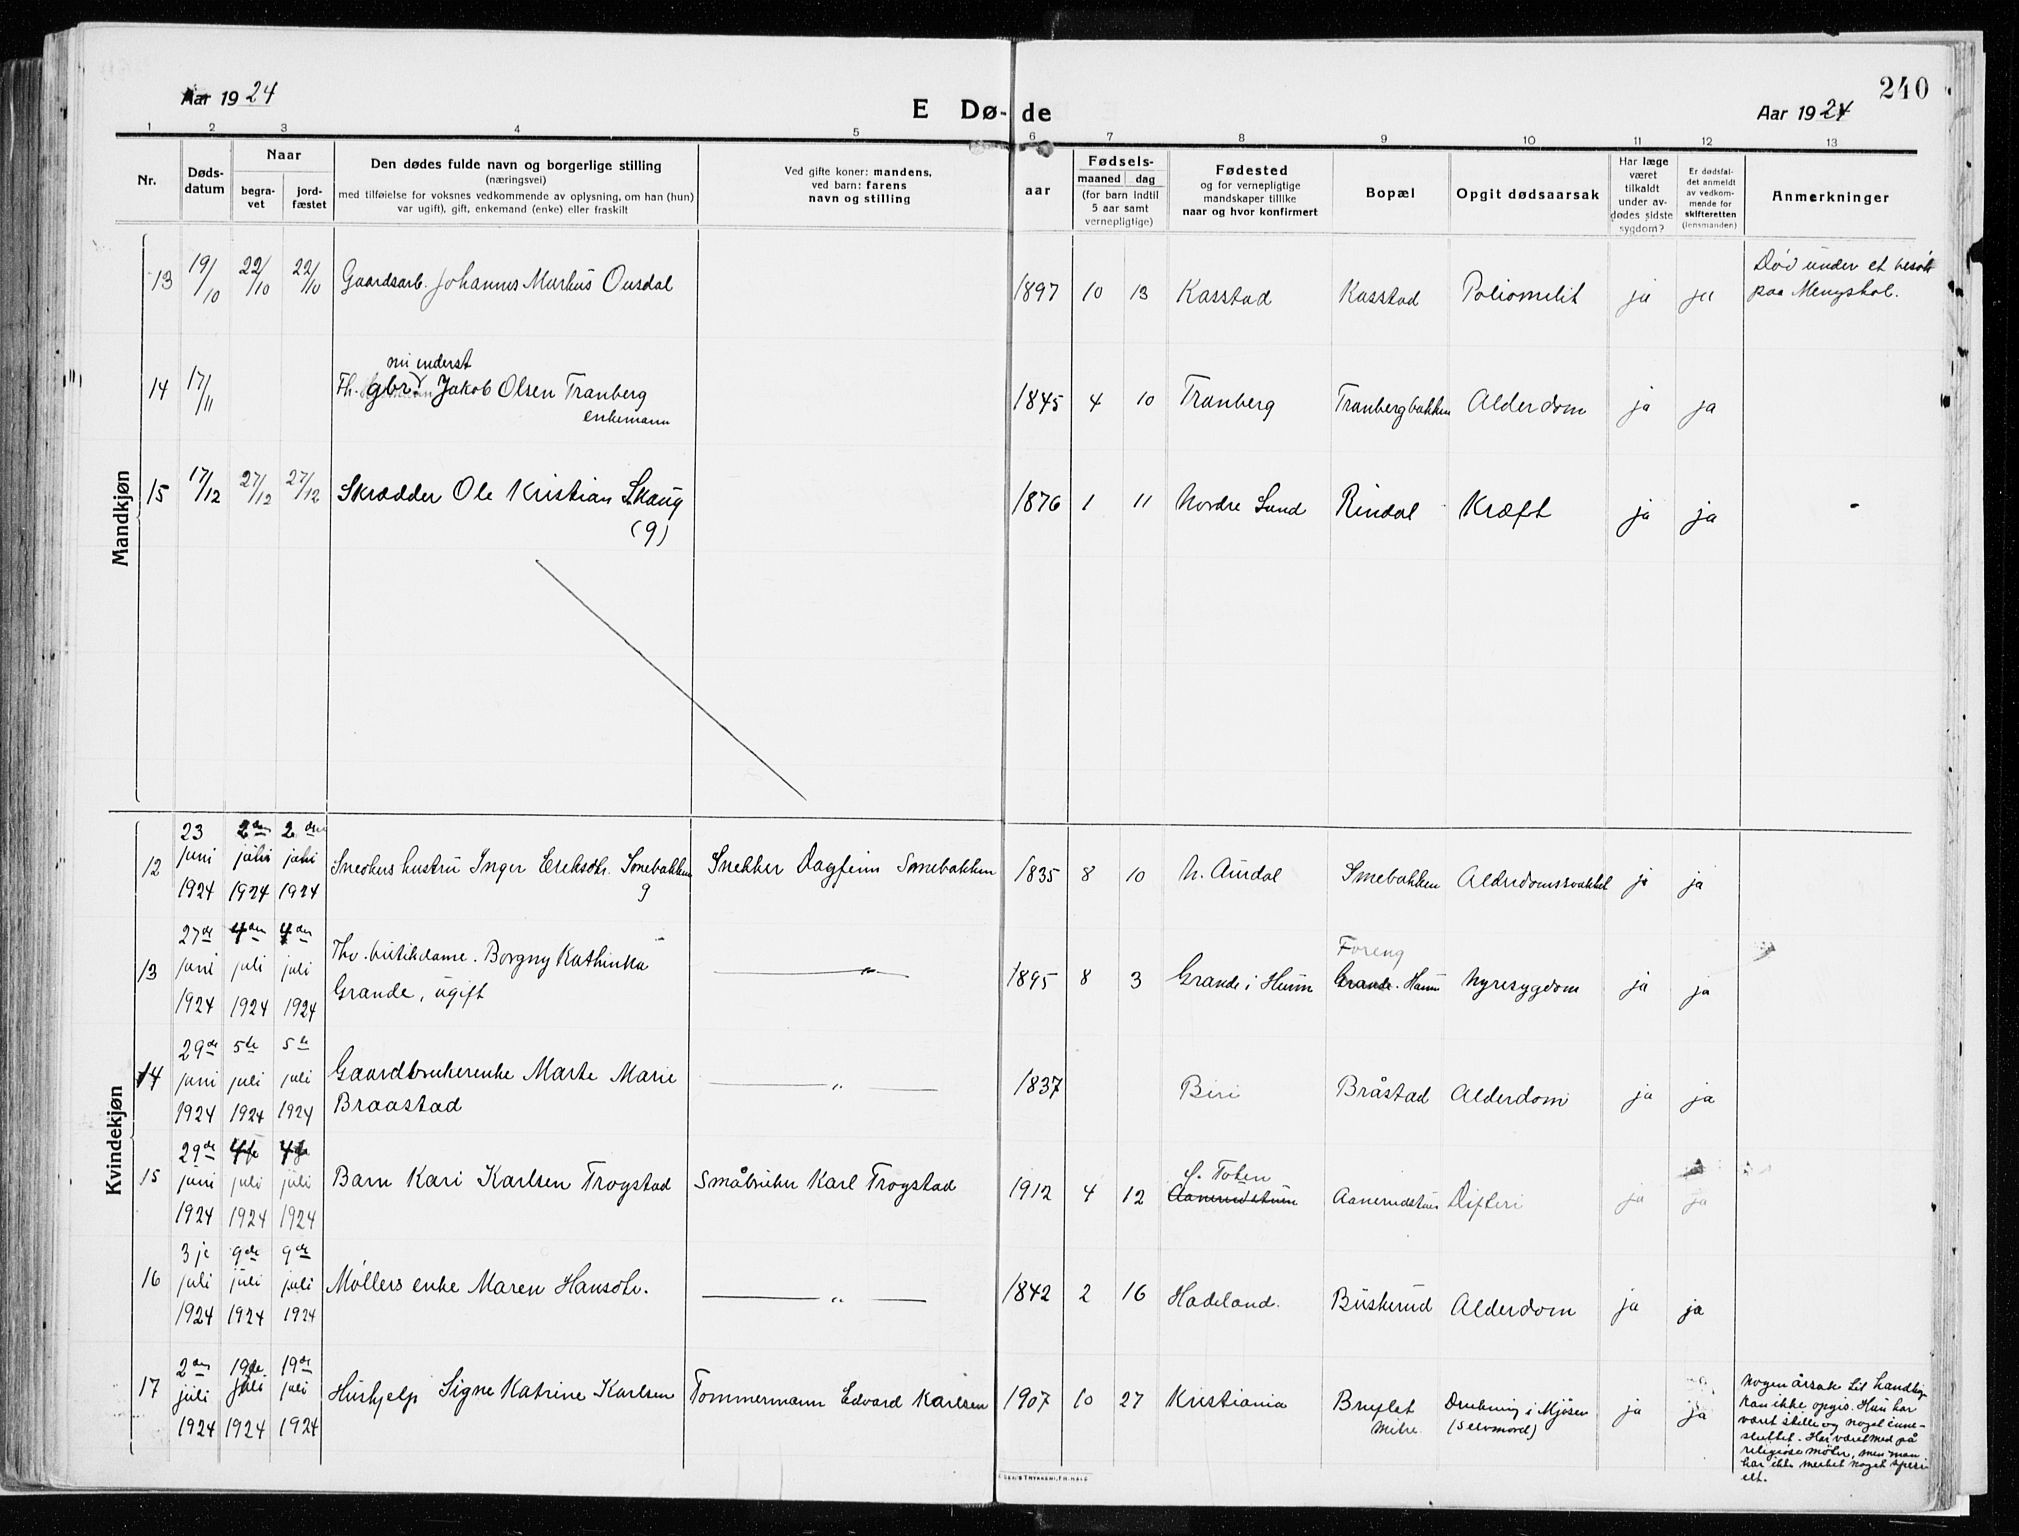 240
Aar 1924
E Dø- de
Aar 1924
1 2 3 4 5 6 7 8 9 10 11 12 13
Nr.
Døds-
datum
Naar
begra-
vet
jord-
fæstet
Den dødes fulde navn og borgerlige stilling
(næringsvei)
med tilføielse for voksnes vedkommende av oplysning, om han (hun)
var ugift), gift, enkemand (enke) eller fraskilt
Ved gifte koner: mandens,
ved barn: farens
navn og stilling
aar
Fødsels-
maaned dag
(for barn indtil
5 aar samt
vernepligtige)
Fødested
og for vernepligtige
mandskaper tillike
naar og hvor konfirmert
Bopæl
Opgit dødsaarsak
Har læge
været
tilkaldt
under av-
dødes sidste
sygdom?
Er dødsfal-
det anmeldt
av vedkom-
mende for
skifteretten
(lensmanden)
Anmerkninger
Mandkjøn
13 19/10 22/10 22/10 Gaardsarb. Johannes Markus Onsdal 1897 10 13 Kasstad Kasstad Poliomelit ja ja
Død under et besøk
paa Mengshol.
nu inderst
14 17/11 Fh. gbr. Jakob Olsen Tranberg 1845 4 10 Tranberg Tranbergbakken Alderdom ja ja
enkemann
15 17/12 27/12 27/12 Skrædder Ole Kristian Skaug 1876 1 11 Nordre Sund Rindal Kræft ja ja -
(g)
Kvindekjøn
12 23 juni 1924 2den juli 1924 2den juli 1924 Snedkers hustru Inger Eriksdtr. Smebakken Snekker Dagfinn Smebakken 1835 8 10 N. Aurdal Smebakken Alderdomssvakhet ja ja
g
13 27de juni 1924 4den juli 1924 4den juli 1924 Fhv. butikdame. Borgny Kathinka — " — 1895 8 3 Grande i Hunn Grande. Hunn Nyresygdom ja ja
Foreng
Grande, ugift
14 29de juni 1924 5te juli 1924 5te juli 1924 Gaardbrukerenke Marte Marie — " — 1837 Biri Bråstad Alderdom ja ja
Braastad
15 29de juni 1924 4de juli 1924 4de juli 1924 Barn Kari Karlsen Trogstad Småbruker Karl Trogstad 1912 4 12 Aanerudstuen Aanerudstuen Difteri ja ja
S. Toten
16 3je juli 1924 9de juli 1924 9de juli 1924 Møllers enke Maren Hansdtr. — " — 1842 2 16 Hadeland. Buskerud Alderdom ja ja
17 2den juli 1924 19de juli 1924 19de juli 1924 Hushjelp Signe Katrine Karlsen Tømmermann Edvard Karlsen 1907 10 27 Kristiania Bruflat Drukning i Mjøsen ja ja
(Selvmord)
Nogen årsak til handling
kan ikke opgis. Hun har
været stille og noget inne-
sluttet. Har været med på
religiøse møter, men man
har ikke merket noget spesi-
elt.